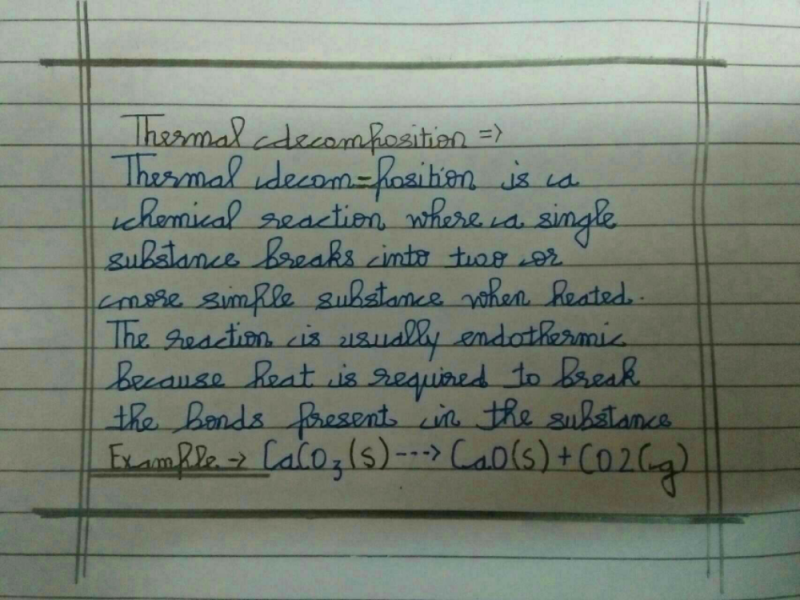 Thermal decomposition =>
Thermal decom=position is a
chemical reaction where a single
substance breaks into two or
more simple substance when heated.
The reaction is usually endothermic
because heat is required to break
the bonds present in the substance
Example → CaCO₃(s) ---> CaO(s) + CO2(g)